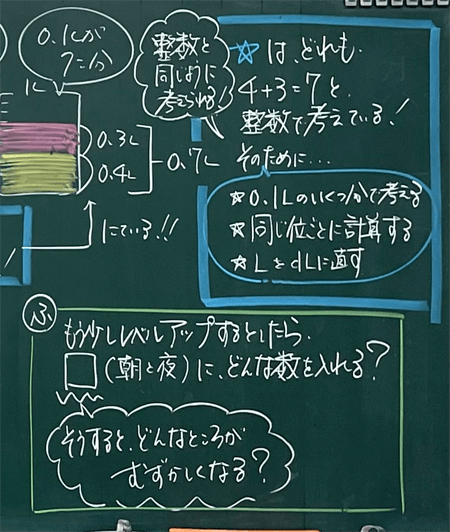 0.1Lが
7こ分
1L
0.3L
0.4L
0.7L
にている!!
整数と
同じように
考えられる!
☆は、どれも
4+3=7と、
整数で考えている!
そのために…
☆0.1Lのいくつ分で考える
☆同じ位ごとに計算する
☆LをdLに直す
ふ
もう少しレベルアップするとしたら、
□(朝と夜)に、どんな数を入れる?
そうすると、どんなところが
むずかしくなる?